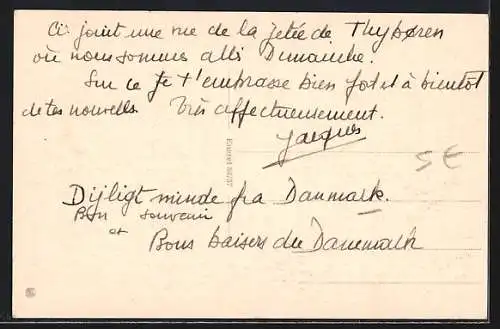 Ci joint une vue de la jetée de Thyborøn
où nous sommes allés Dimanche.
Sur ce je t'embrasse bien fort et à bientôt
de tes nouvelles. Très affectueusement.
Jacques
5 €
Eneret 88/37
Dijligt minde fra Danmark.
Bon souvenir
et
Bons baisers du Danemark